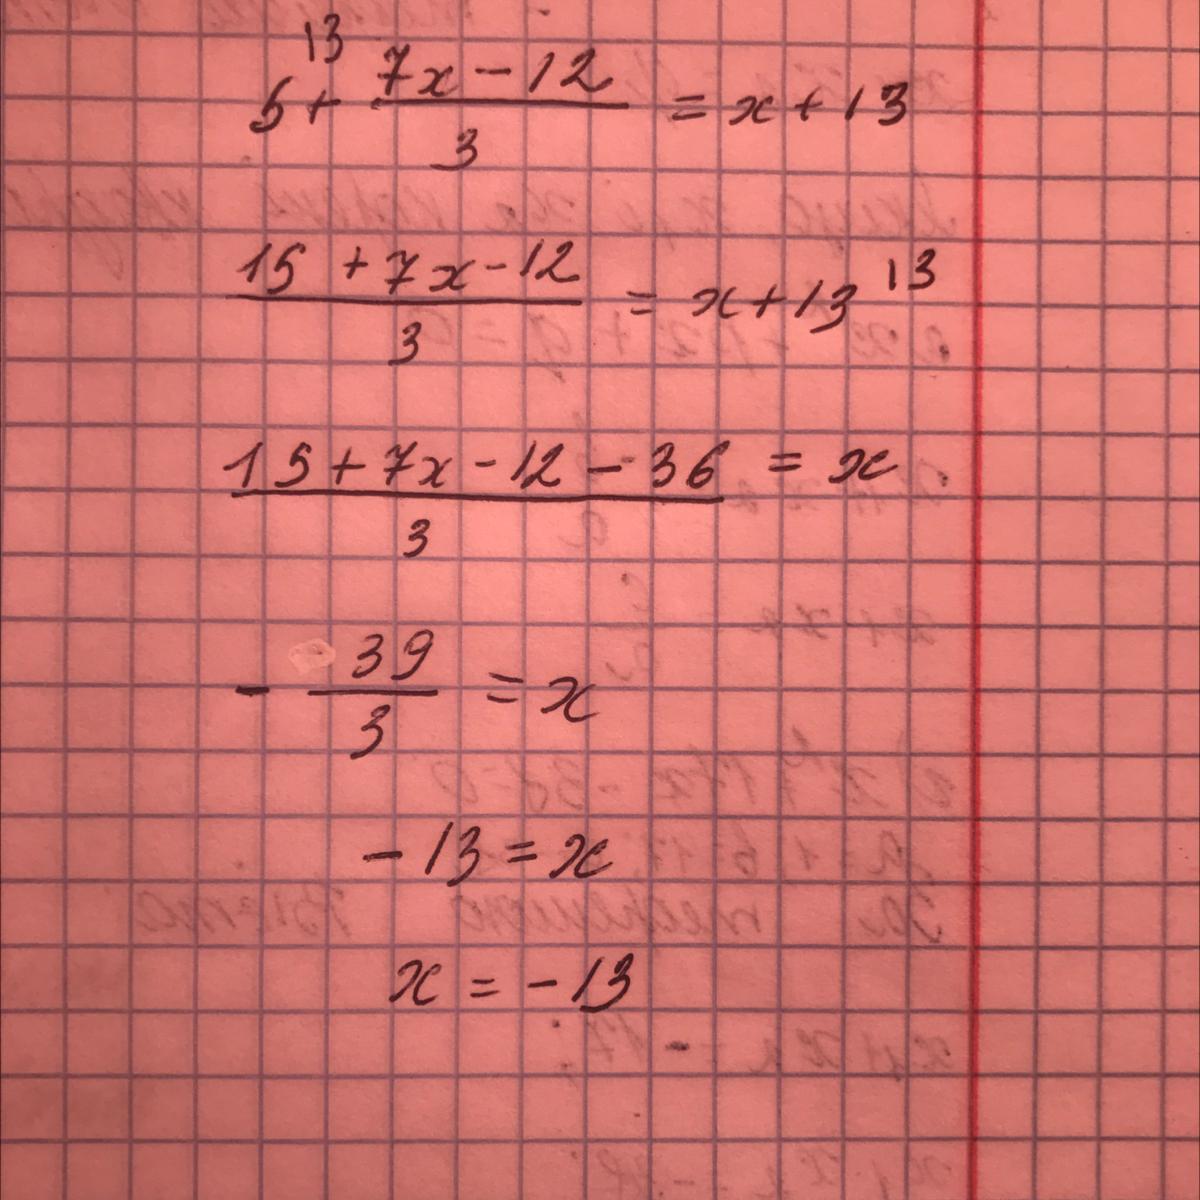 5 + ¹³ (7x - 12)/3 = x + 13
(15 + 7x - 12)/3 = x + 13 ¹³
(15 + 7x - 12 - 36)/3 = x
- 39/3 = x
- 13 = x
x = - 13